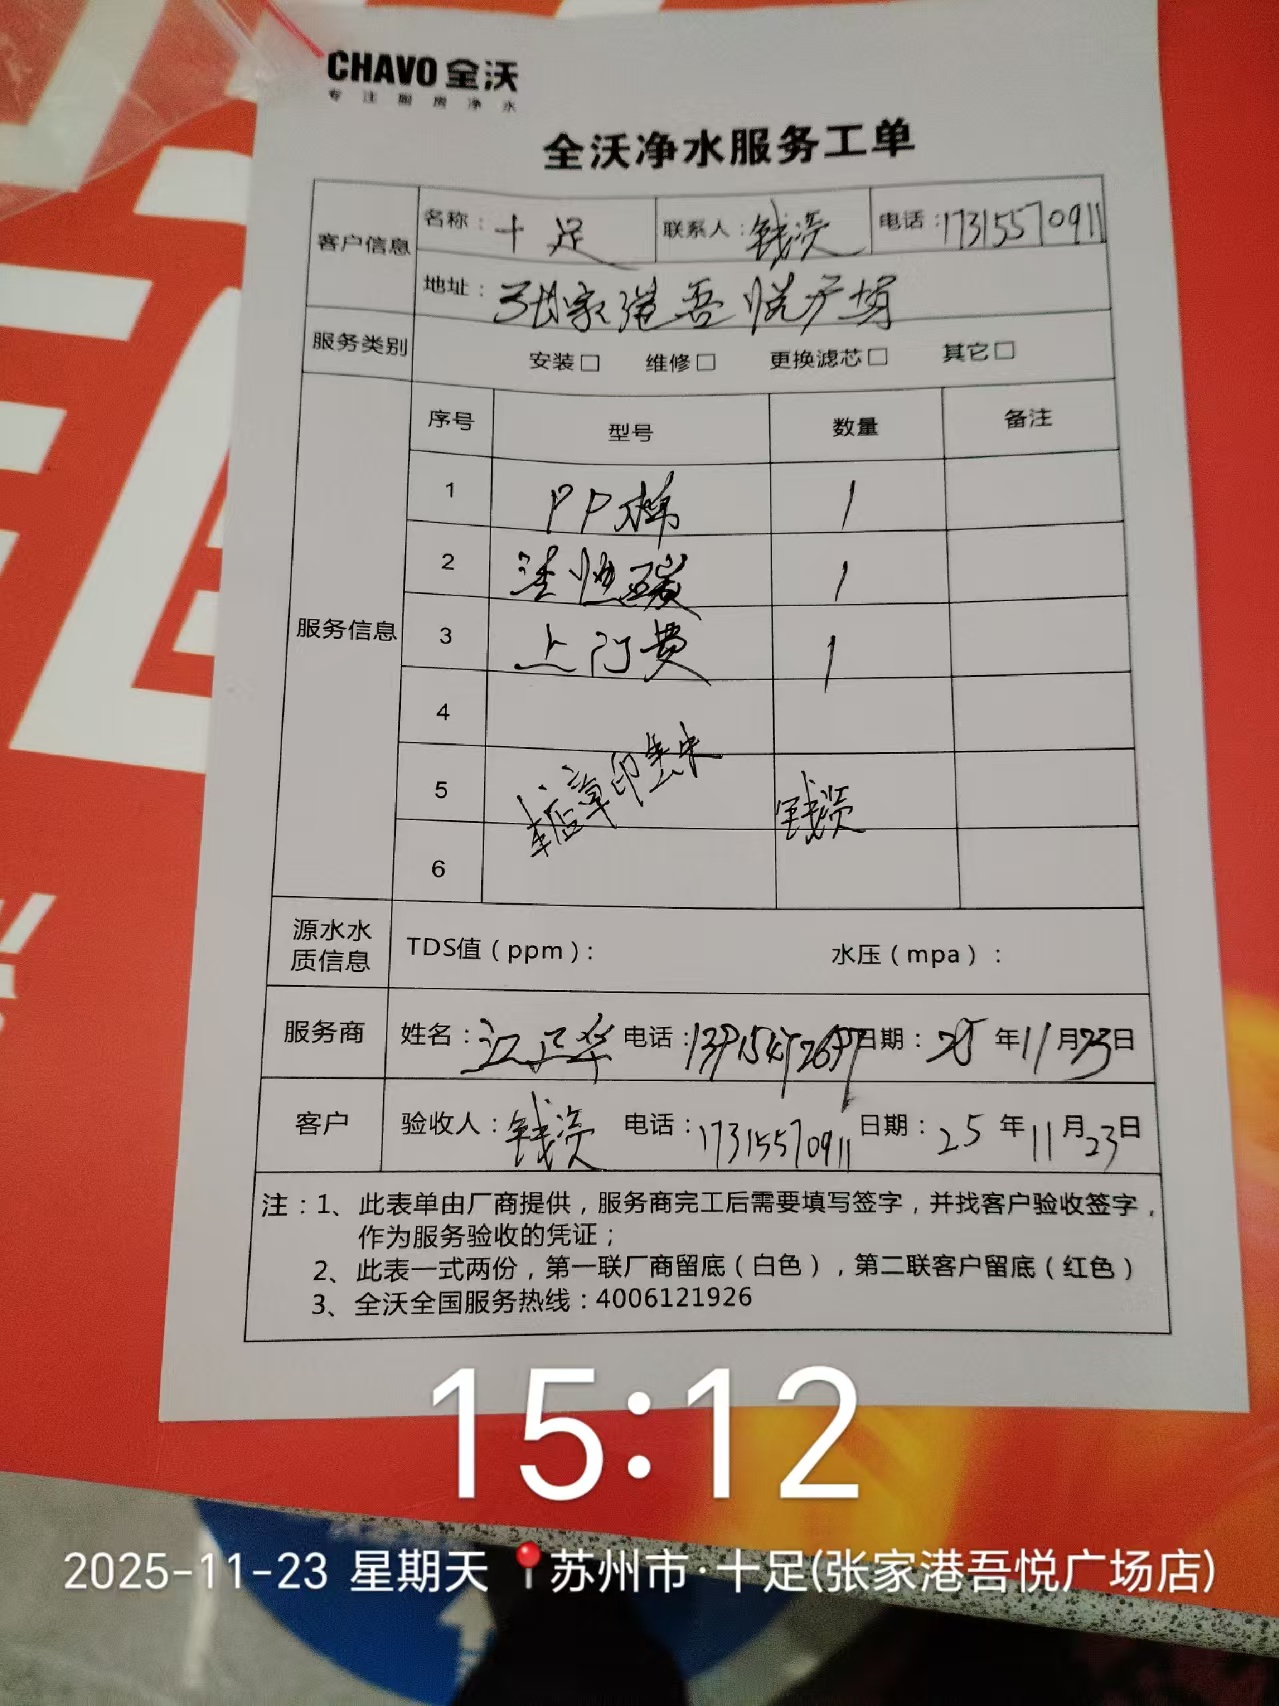 CHAVO 全沃
专注厨房净水
全沃净水服务工单
客户信息 名称：十足 联系人：钱 电话：17315570911
地址：张家港吾悦广场
服务类别 安装□ 维修□ 更换滤芯□ 其它□
服务信息 序号 型号 数量 备注
1 PP棉 1
2 活性碳 1
3 上门费 1
4
5 店章印 钱
6
源水水质信息 TDS值（ppm）： 水压（mpa）：
服务商 姓名：江正华 电话： 日期：25年11月23日
客户 验收人：钱 电话：17315570911 日期：25年11月23日
注：1、此表单由厂商提供，服务商完工后需要填写签字，并找客户验收签字，
作为服务验收的凭证；
2、此表一式两份，第一联厂商留底（白色），第二联客户留底（红色）
3、全沃全国服务热线：4006121926
15:12
2025-11-23 星期天 苏州市·十足(张家港吾悦广场店)